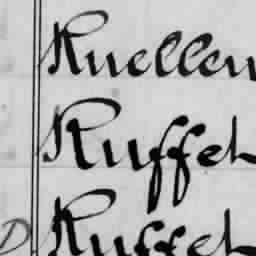 Kuellen
Kuffeh
D Kuffeh